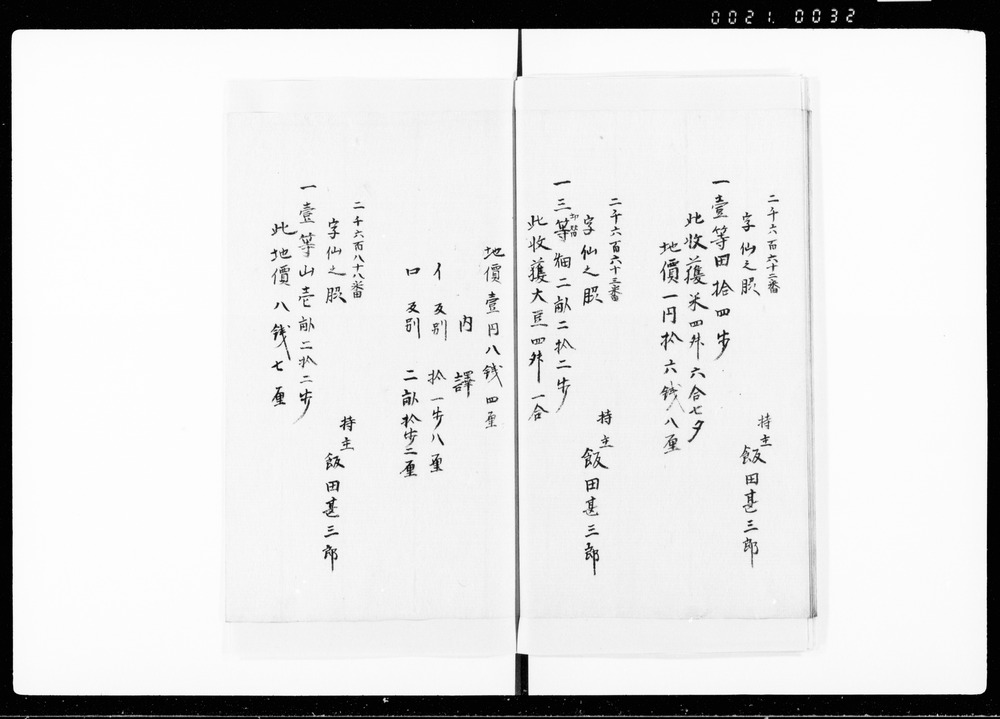 0021. 0032
二千六百六十二番
字仙之
持主
飯田甚三郎
一壹等田拾四歩
此收獲米四舛六合七夕
地價一円拾六銭八厘
二千六百六十三番
字仙之
持主
飯田甚三郎
一三等畑二畝二拾二歩
此收獲大豆四舛一合
地價壹円八銭四厘
内譯
イ 反別 拾一歩八厘
ロ 反別 二畝拾歩二厘
二千六百八十八番
字仙之
持主
飯田甚三郎
一壹等山壱畝二拾二歩
此地價八銭七厘